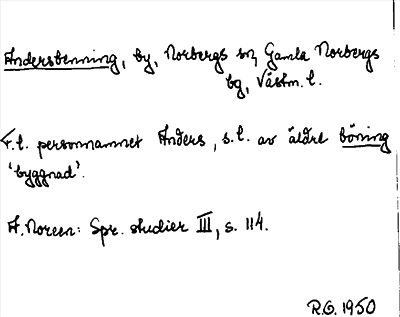 Andersbenning, by, Norbergs sn, Gamla Norbergs
bg, Västm. l.
F.l. personnamnet Anders, s.l. av äldre böning
'byggnad'.
A. Noreen: Spr. studier III, s. 114.
R.O. 1950